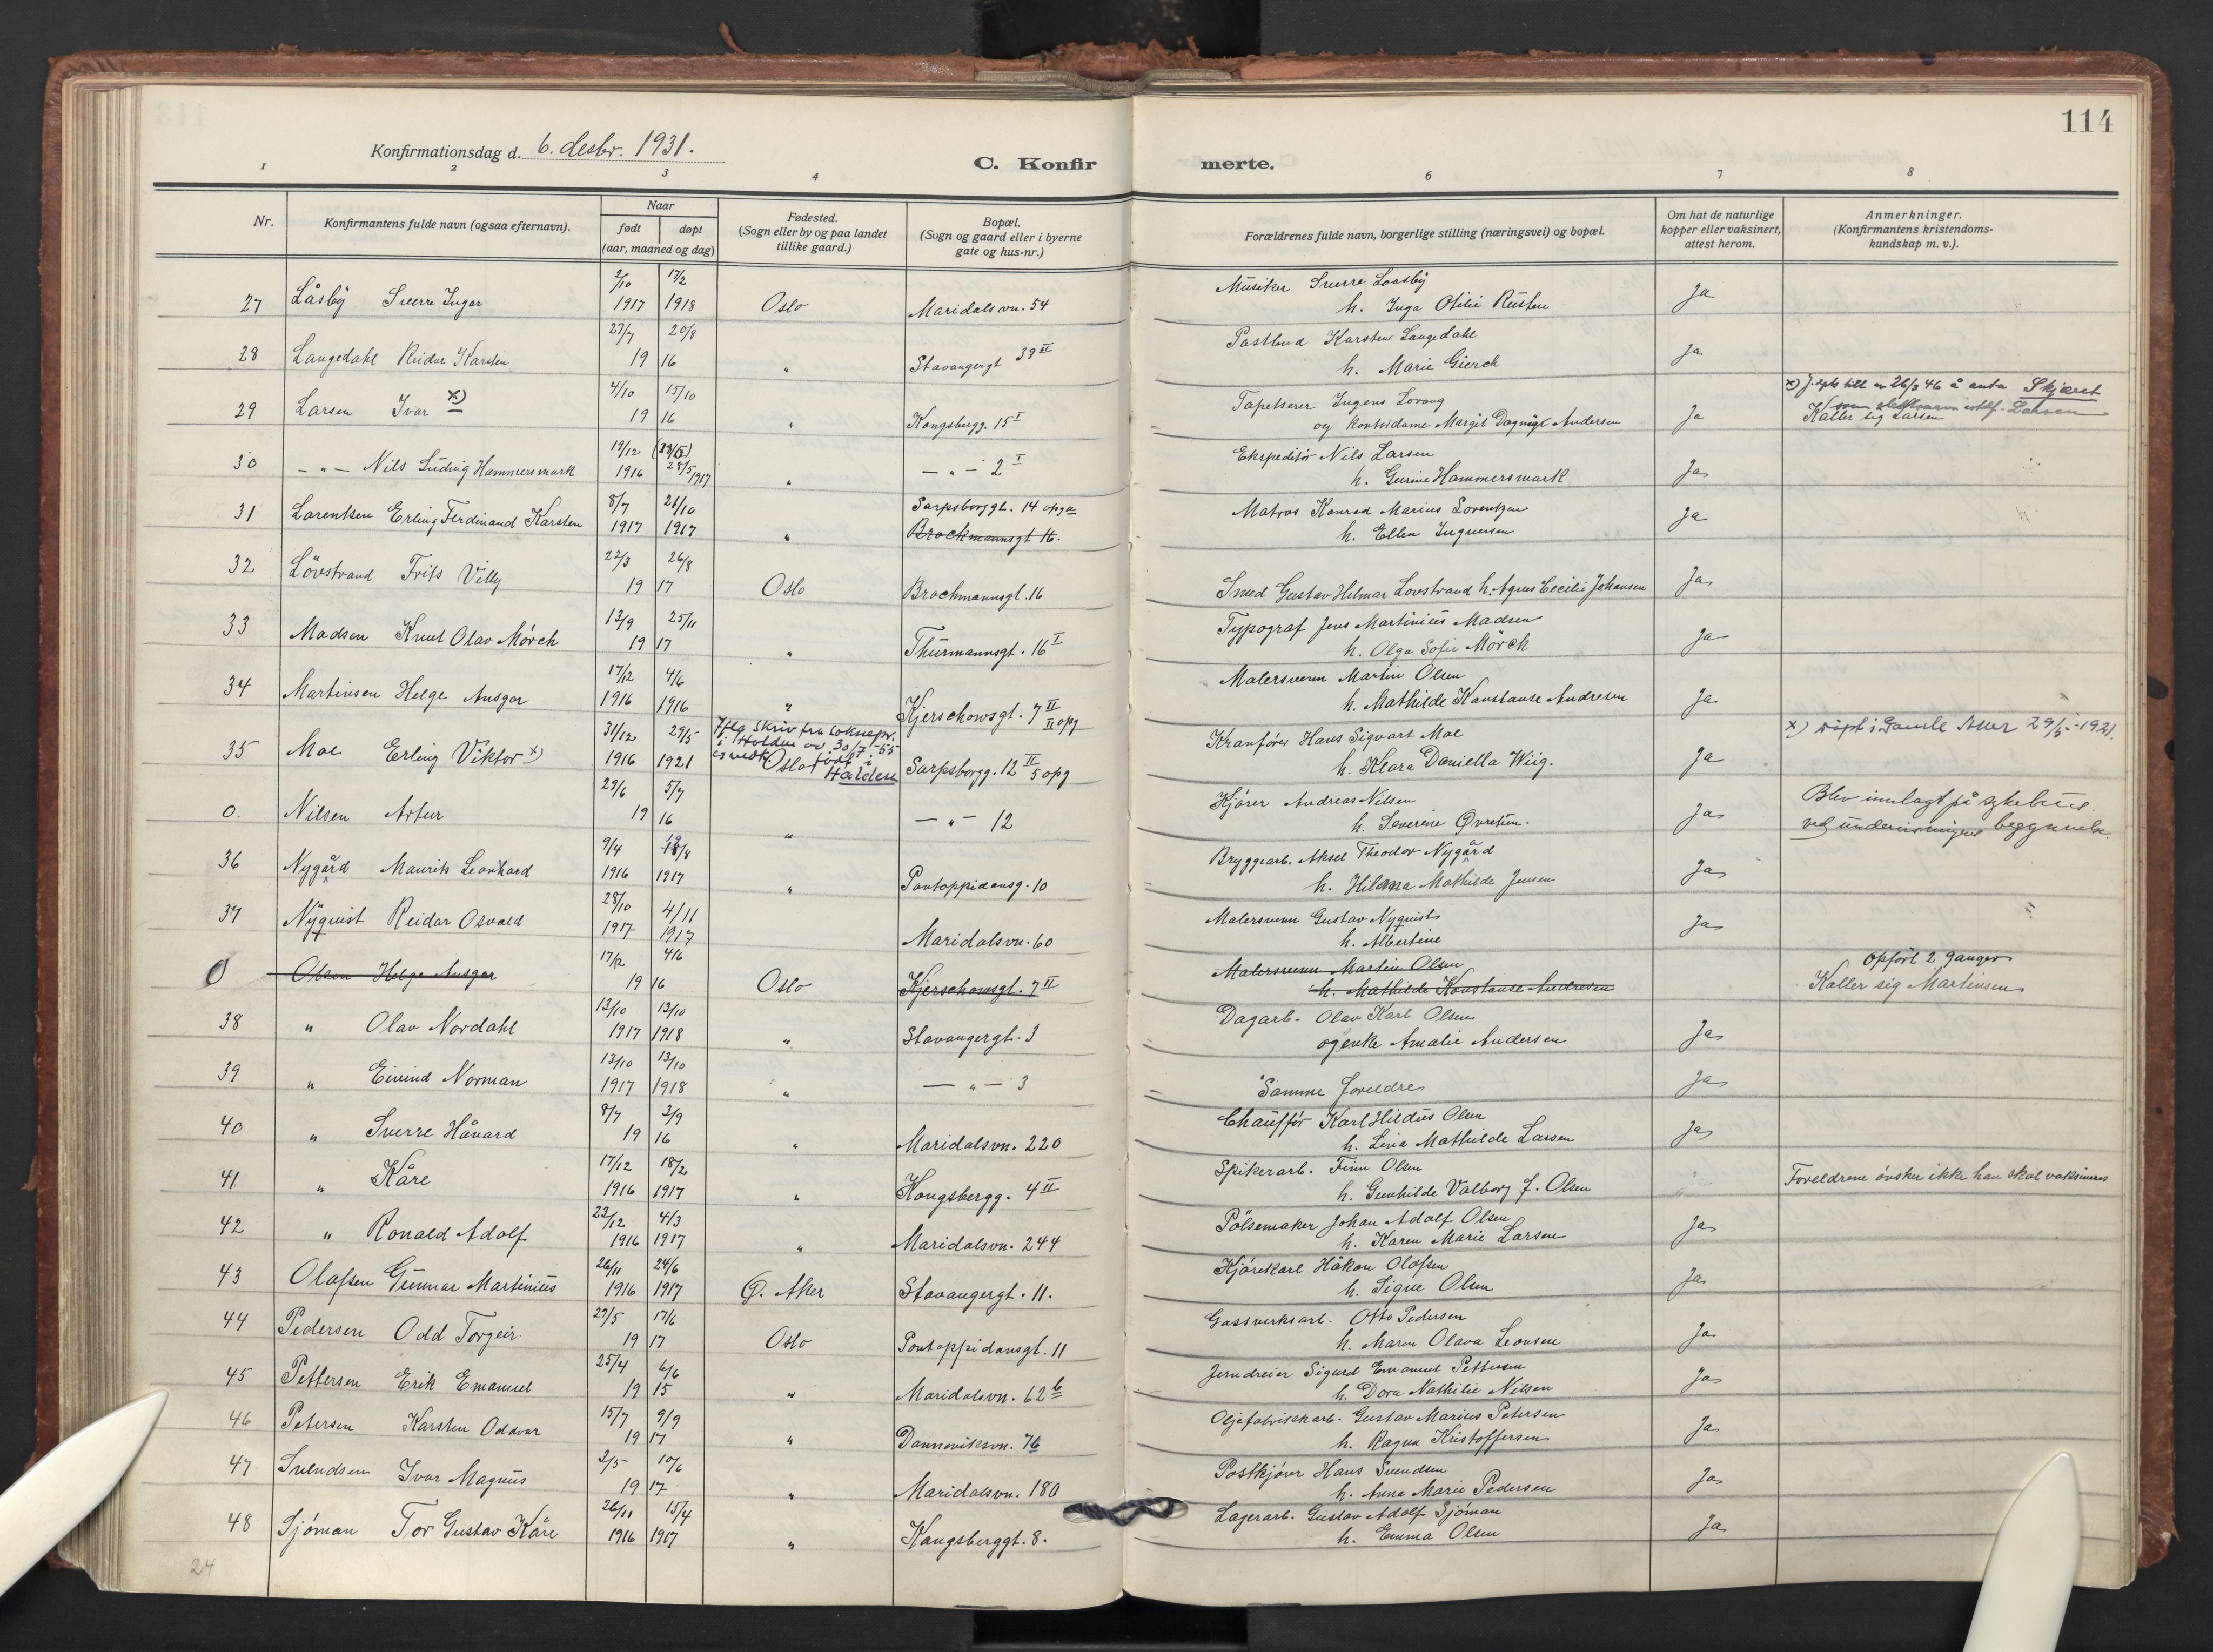 114
Konfirmationsdag d. 6. desbr. 1931.
C. Konfirmerte.
1 2 3 4 6 7 8
Nr.
Konfirmantens fulde navn (ogsaa efternavn).
Naar
født døpt
(aar, maaned og dag)
Fødested.
(Sogn eller by og paa landet
tillike gaard.)
Bopæl.
(Sogn og gaard eller i byerne
gate og hus-nr.)
Forældrenes fulde navn, borgerlige stilling (næringsvei) og bopæl.
Om hat de naturlige
kopper eller vaksinert,
attest herom.
Anmerkninger.
(Konfirmantens kristendoms-
kundskap m. v.).
2/10 17/2 Musiker Sverre Laasby
27 Låsby Sverre Ingar 1917 1918 Oslo Maridalsvn. 54 h. Inga Otilie Rusten Ja
27/7 20/8 Postbud Karsten Langedahl
28 Langedahl Reidar Karsten 19 16 " Stavangergt 39 II h. Marie Gierch Ja
4/10 15/10 Tapetserer Ingens Lorang x) 26/3 46 å anta Skjæret
29 Larsen Ivar x) 19 16 " Kongsbergg. 15 I og Kontordame Margit Dagny Andersen Ja Kaller sig Larsen
19/12 Ekspeditør Nils Larsen
30 – " – Nils Ludvig Hammersmark 1916 28/5 1917 " – " – 2 I h. Gurine Hammersmark Ja
8/7 21/10 Sarpsborggt. 14 opg a Matros Konrad Marius Lorentzen
31 Lorentzen Erling Ferdinand Karsten 1917 1917 " Brochmannsgt 16. h. Ellen Ingversen Ja
22/3 26/8
32 Lövstrand Frits Villy 19 17 Oslo Brochmannsgt. 16 Smed Gustav Hilmar Lovstrand h. Agnes Cecilie Johansen Ja
13/9 25/11 Typograf Jens Martinius Madsen
33 Madsen Knut Olav Mörch 19 17 " Thurmannsgt. 16 I h. Olga Sofie Mörch Ja
17/12 4/6 Malersvenn Martin Olsen
34 Martinsen Helge Ansgar 1916 1916 " Kjerschowsgt. 7 II II opg h. Mathilde Konstanse Andresen Ja
31/12 29/5 Ifla skriv fra soknepr. i Halden av 30/7-55 Kranfører Hans Sigvart Moe x) døpt i Gamle Aker 29/5-1921.
35 Moe Erling Viktor x) 1916 1921 Oslo født i Halden Sarpsborgg. 12 II 5 opg h. Klara Daniella Wiig. Ja
29/6 5/7 Kjörer Andreas Nilsen Blev innlagt på sykehus
0. Nilsen Artur 19 16 " – " – 12 h. Severine Øvretun. Ja ved undervisningens begynnelse
9/4 Bryggearb. Aksel Theodor Nygård
36 Nygård Maurits Leonhard 1916 1917 " Pontoppidansg. 10 h. Hilma Mathilde Jensen Ja
28/10 4/11 Malersvenn Gustav Nyquist
37 Nyquist Reidar Osvald 1917 1917 Maridalsvn. 60 h. Albertine Ja
17/12 4/6 Malersvenn Martin Olsen Opfört 2 ganger
0 Olsen Helge Ansgar 19 16 Oslo Kjerschowsgt. 7 II h. Mathilde Konstanse Andresen Kaller sig Martinsen
13/10 13/10 Dagarb. Olav Karl Olsen
38 " Olav Nordahl 1917 1918 " Stavangergt. 3 og enke Amalie Andersen Ja
13/10 13/10
39 " Eivind Norman 1917 1918 " – " – 3 Samme foreldre Ja
8/7 3/9 Chauffør Karl Hildus Olsen
40 " Sverre Håvard 19 16 " Maridalsvn. 220 h. Lina Mathilde Larsen Ja
17/12 18/2 Spikerarb. Finn Olsen
41 " Kåre 1916 1917 " Kongsbergg. 4 II h. Gunhilde Valborg J. Olsen Foreldrene önsker ikke han skal vaksineres
23/12 4/3 Pölsemaker Johan Adolf Olsen
42 " Ronald Adolf 1916 1917 " Maridalsvn. 244 h. Karen Marie Larsen Ja
26/11 24/6 Kjörekarl Håkon Olafsen
43 Olafsen Gunnar Martinius 1916 1917 Ø. Aker Stavangergt. 11. h. Signe Olsen Ja
29/5 17/6 Gassverksarb. Otto Pedersen
44 Pedersen Odd Torgeir 19 17 Oslo Pontoppidansgt. 11 h. Maren Olava Leonsen Ja
25/4 6/6 Jerndreier Sigurd Emanuel Pettersen
45 Pettersen Erik Emanuel 19 15 " Maridalsvn. 62 b h. Dora Nathilie Nilsen Ja
15/7 9/9 Oljefabrikkarb. Gustav Marius Petersen
46 Petersen Karsten Oddvar 19 17 " Dannevikevn. 76 h. Ragna Kristoffersen Ja
3/5 10/6 Postkjörer Hans Svendsen
47 Svendsen Ivar Magnus 19 17 " Maridalsvn. 180 h. Anna Marie Pedersen Ja
26/11 15/4 Lagerarb. Gustav Adolf Sjöman
48 Sjöman Tor Gustav Kåre 1916 1917 " Kongsberggt. 8. h. Emma Olsen Ja
24